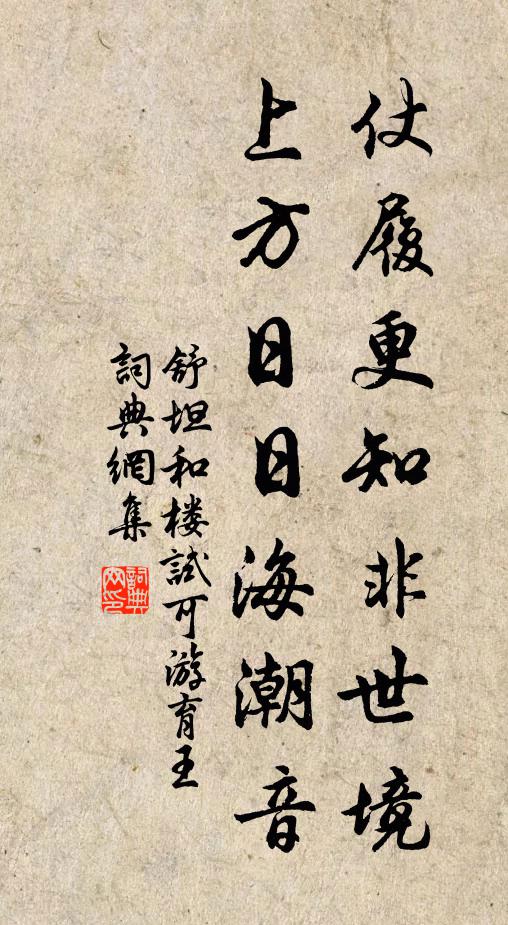 仗履更知非世境
上方日日海潮音
舒坦和楼試可游育王
詞典網集
詞典
网印